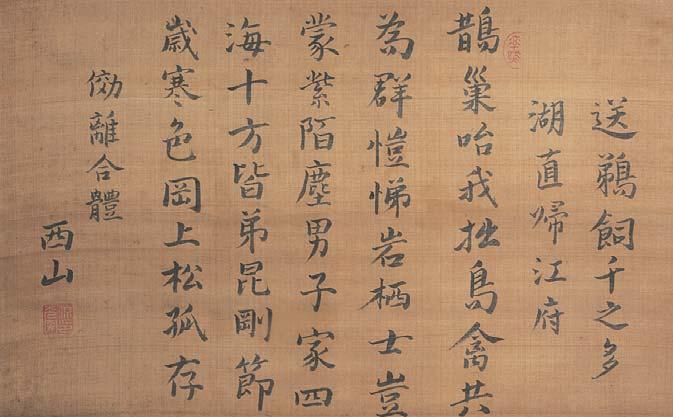 送鵜飼千之多
湖直歸江府
鵲巢咍我拙鳥禽共
為群愷悌岩栖士豈
蒙紫陌塵男子家四
海十方皆弟昆剛節
歲寒色岡上松孤存
効離合體
西山